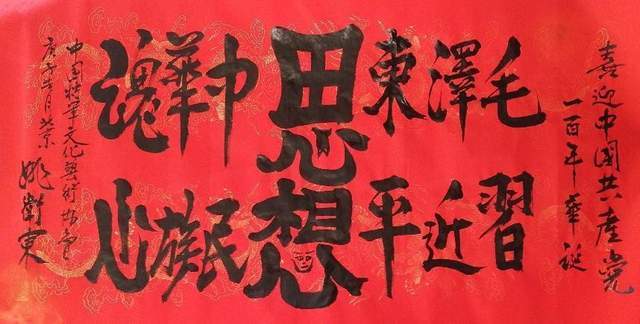 喜迎中國共產黨
一百年華誕
毛澤東
習近平
思想
中華魂
民族心
中国將軍文化藝術
庚子
姚衛東